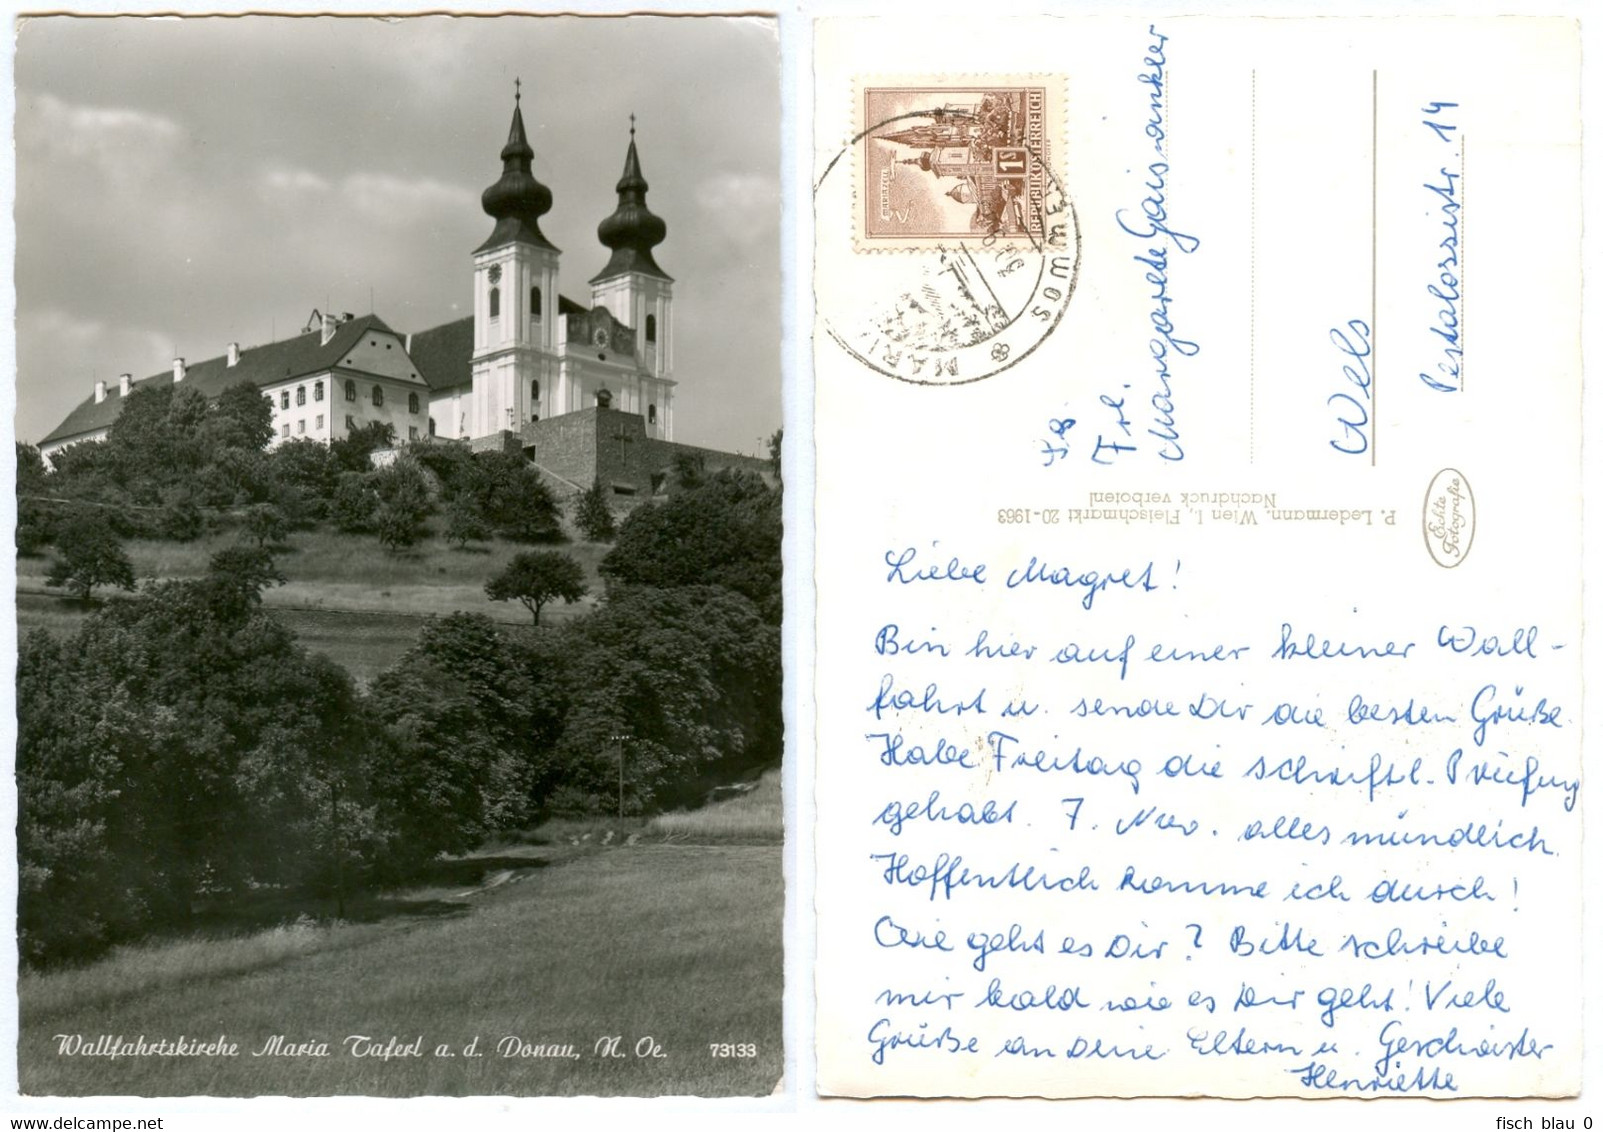 Wallfahrtskirche Maria Taferl a. d. Donau, N. Oe. 73133
REPUBLIK ÖSTERREICH
1S
MARIAZELL
MARIA
SOMME
Frl.
Margarete Gaisankler
Wels
Pestalossistr. 14
P. Ledermann, Wien I., Fleischmarkt 20-1963
Nachdruck verboten!
Echte
Fotografie
Liebe Magret!
Bin hier auf einer kleiner Wall-
fahrt u. sende Dir die besten Grüße.
Habe Freitag die schriftl. Prüfung
gehabt. 7. Nov. alles mündlich.
Hoffentlich komme ich durch!
Wie geht es Dir? Bitte schreibe
mir bald wie es Dir geht! Viele
Grüße an Deine Eltern u. Geschwister
Henriette
fisch_blau_0